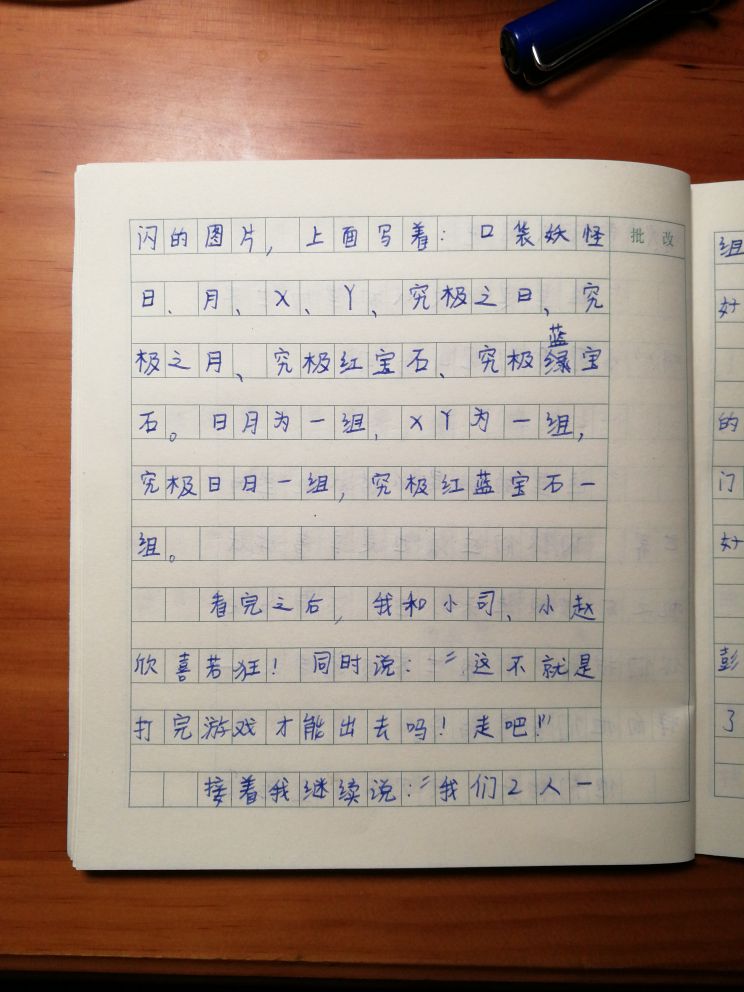 闪的图片，上面写着：口袋妖怪
日、月、X、Y、究极之日、究
极之月、究极红宝石、究极蓝宝
石。日月为一组，XY为一组，
究极日月一组，究极红蓝宝石一
组。
看完之后，我和小司、小赵
欣喜若狂！同时说：“这不就是
打完游戏才能出去吗！走吧！”
接着我继续说：“我们2人一
批改
组
好
的
门
好
彭
了